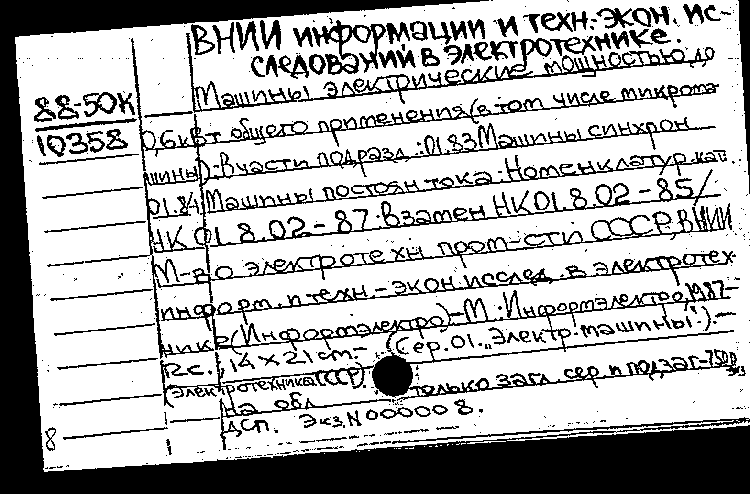 ВНИИ информации и техн.-экон. ис-
следований в электротехнике.
88-50К
10358
Машины электрические мощностью до
0,6кВт общего применения (в том числе микрома
шины): В части подразд.: 01.83 Машины синхрон
01.84 Машины постоян. тока: Номенклатур. кат
НК 01.8.02-87. Взамен НК 01.8.02-85/
М-во электротехн. пром-сти СССР, ВНИИ
информ. и техн.-экон. исслед. в электротех-
нике (Информэлектро).-М.: Информэлектро, 1987.-
12 с., 14×21 cm.- (Сер. 01. „Электр. машины").-
(Электротехника СССР)
на обл. только загл. сер. и подзаг.-750р
экз
ДСП. Экз. N000008.
8